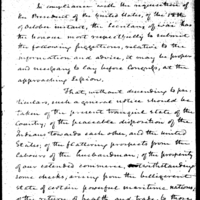 In compliance with the requisition of
the President of the United States, of the
of October instant, the Secretary of War has
the honour most respectfully to submit
the following suggestions, relative to the
information and advice, it may be proper
and necessary to lay before Congress, at the
approaching session.
That, without descending to par-
ticulars, such a general notice should be
taken of the present tranquil state of the
country; of the peaceable disposition of the
Indians towards each other, and the United
States; of the flattering prospects from the
labours of the husbandman; of the prosperity
of our extended commerce, notwithstanding
some checks, arising from the belligerent
state of certain powerful maritime nations;
of the return of health and trade to those